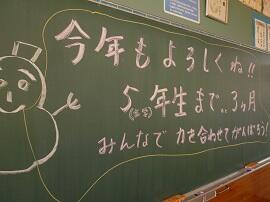 今年もよろしくね!!
5年生まで、3ヶ月
みんなで 力を合わせてがんばろう!